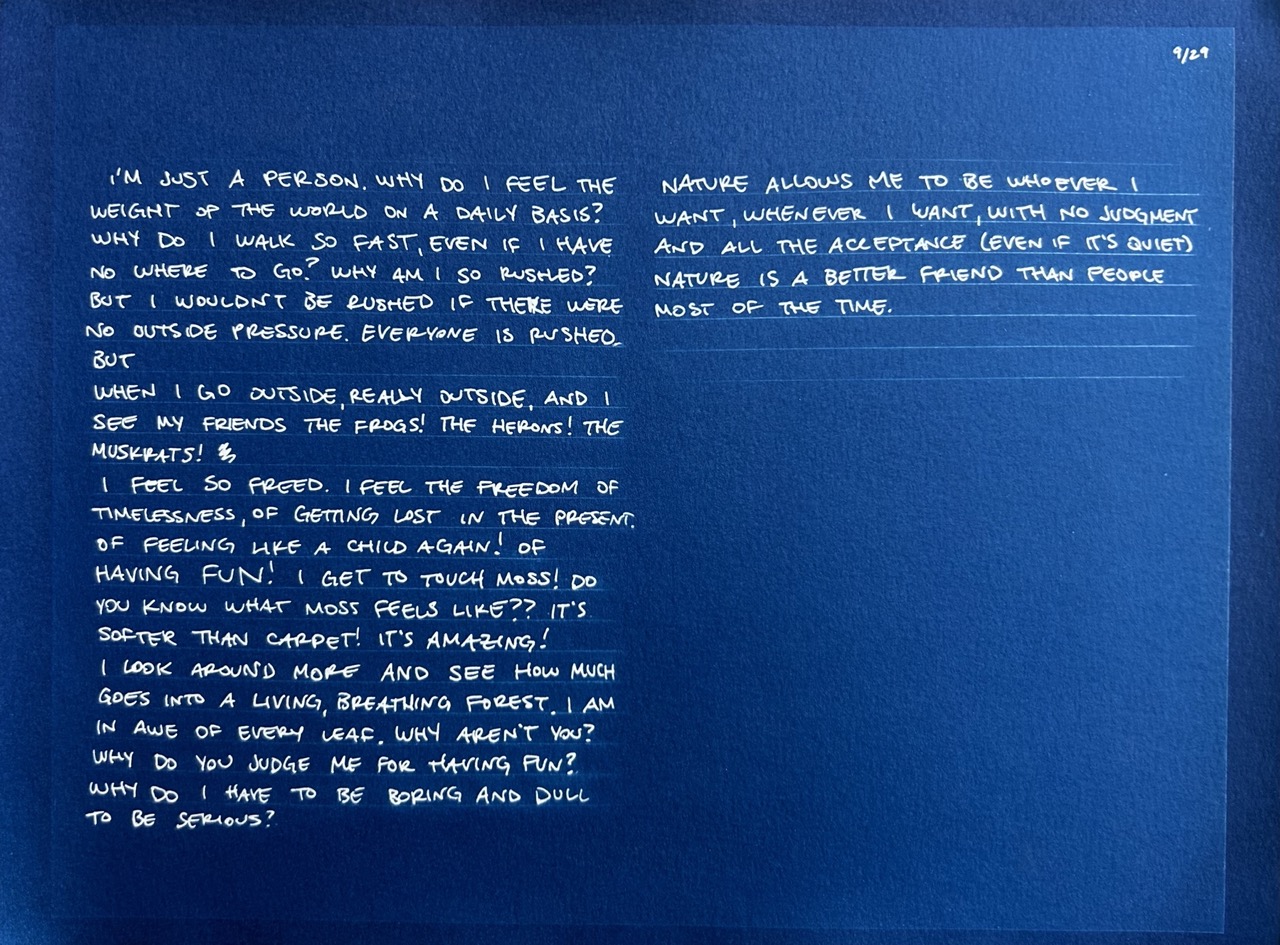 9/29
I'M JUST A PERSON. WHY DO I FEEL THE
WEIGHT OF THE WORLD ON A DAILY BASIS?
WHY DO I WALK SO FAST, EVEN IF I HAVE
NO WHERE TO GO? WHY AM I SO RUSHED?
BUT I WOULDN'T BE RUSHED IF THERE WERE
NO OUTSIDE PRESSURE. EVERYONE IS RUSHED.
BUT
WHEN I GO OUTSIDE, REALLY OUTSIDE, AND I
SEE MY FRIENDS THE FROGS! THE HERONS! THE
MUSKRATS!
I FEEL SO FREED. I FEEL THE FREEDOM OF
TIMELESSNESS, OF GETTING LOST IN THE PRESENT.
OF FEELING LIKE A CHILD AGAIN! OF
HAVING FUN! I GET TO TOUCH MOSS! DO
YOU KNOW WHAT MOSS FEELS LIKE?? IT'S
SOFTER THAN CARPET! IT'S AMAZING!
I LOOK AROUND MORE AND SEE HOW MUCH
GOES INTO A LIVING, BREATHING FOREST. I AM
IN AWE OF EVERY LEAF. WHY AREN'T YOU?
WHY DO YOU JUDGE ME FOR HAVING FUN?
WHY DO I HAVE TO BE BORING AND DULL
TO BE SERIOUS?
NATURE ALLOWS ME TO BE WHOEVER I
WANT, WHENEVER I WANT, WITH NO JUDGMENT
AND ALL THE ACCEPTANCE (EVEN IF IT'S QUIET)
NATURE IS A BETTER FRIEND THAN PEOPLE
MOST OF THE TIME.